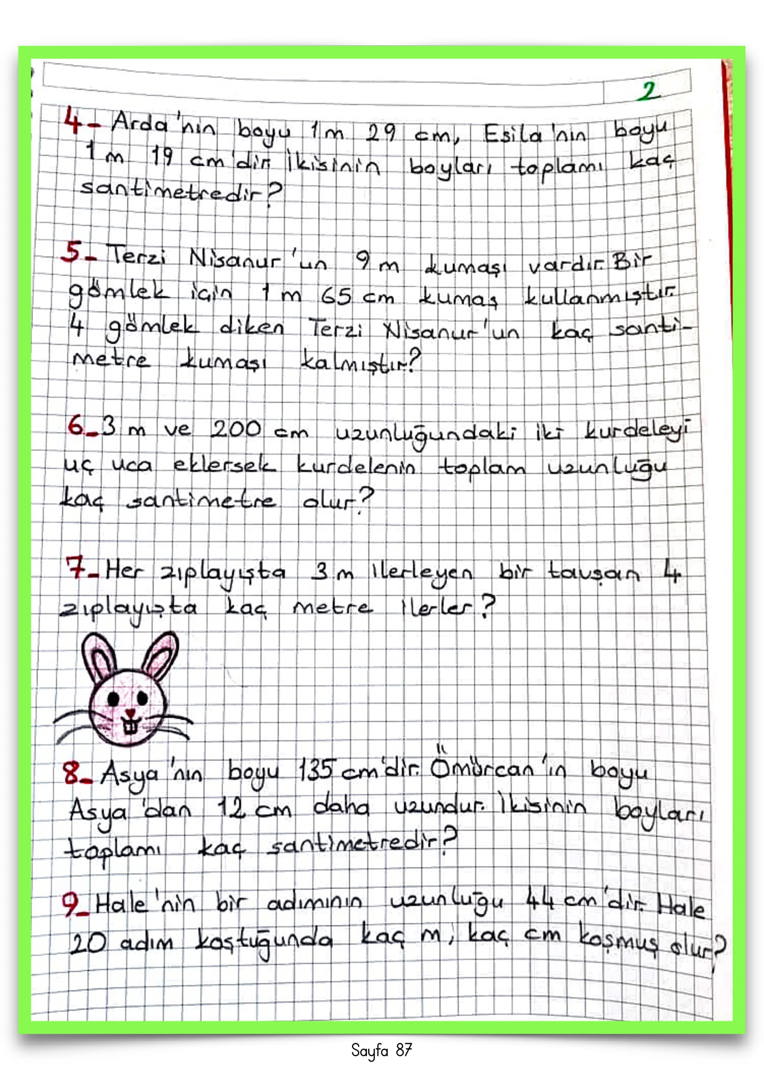 2
4- Arda'nın boyu 1m 29 cm, Esila'nın boyu
1 m 19 cm'dir. İkisinin boyları toplamı kaç
santimetredir?
5- Terzi Nisanur'un 9 m kumaşı vardır. Bir
gömlek için 1 m 65 cm kumaş kullanmıştır.
4 gömlek diken Terzi Nisanur'un kaç santi-
metre kumaşı kalmıştır?
6-3 m ve 200 cm uzunluğundaki iki kurdeleyi
uç uca eklersek kurdelenin toplam uzunluğu
kaç santimetre olur?
7-Her zıplayışta 3 m ilerleyen bir tavşan 4
zıplayışta kaç metre ilerler?
8- Asya'nın boyu 135 cm'dir. Ömürcan'ın boyu
Asya'dan 12 cm daha uzundur. İkisinin boyları
toplamı kaç santimetredir?
9-Hale'nin bir adımının uzunluğu 44 cm'dir. Hale
20 adım koştuğunda kaç m, kaç cm koşmuş olur?
Sayfa 87